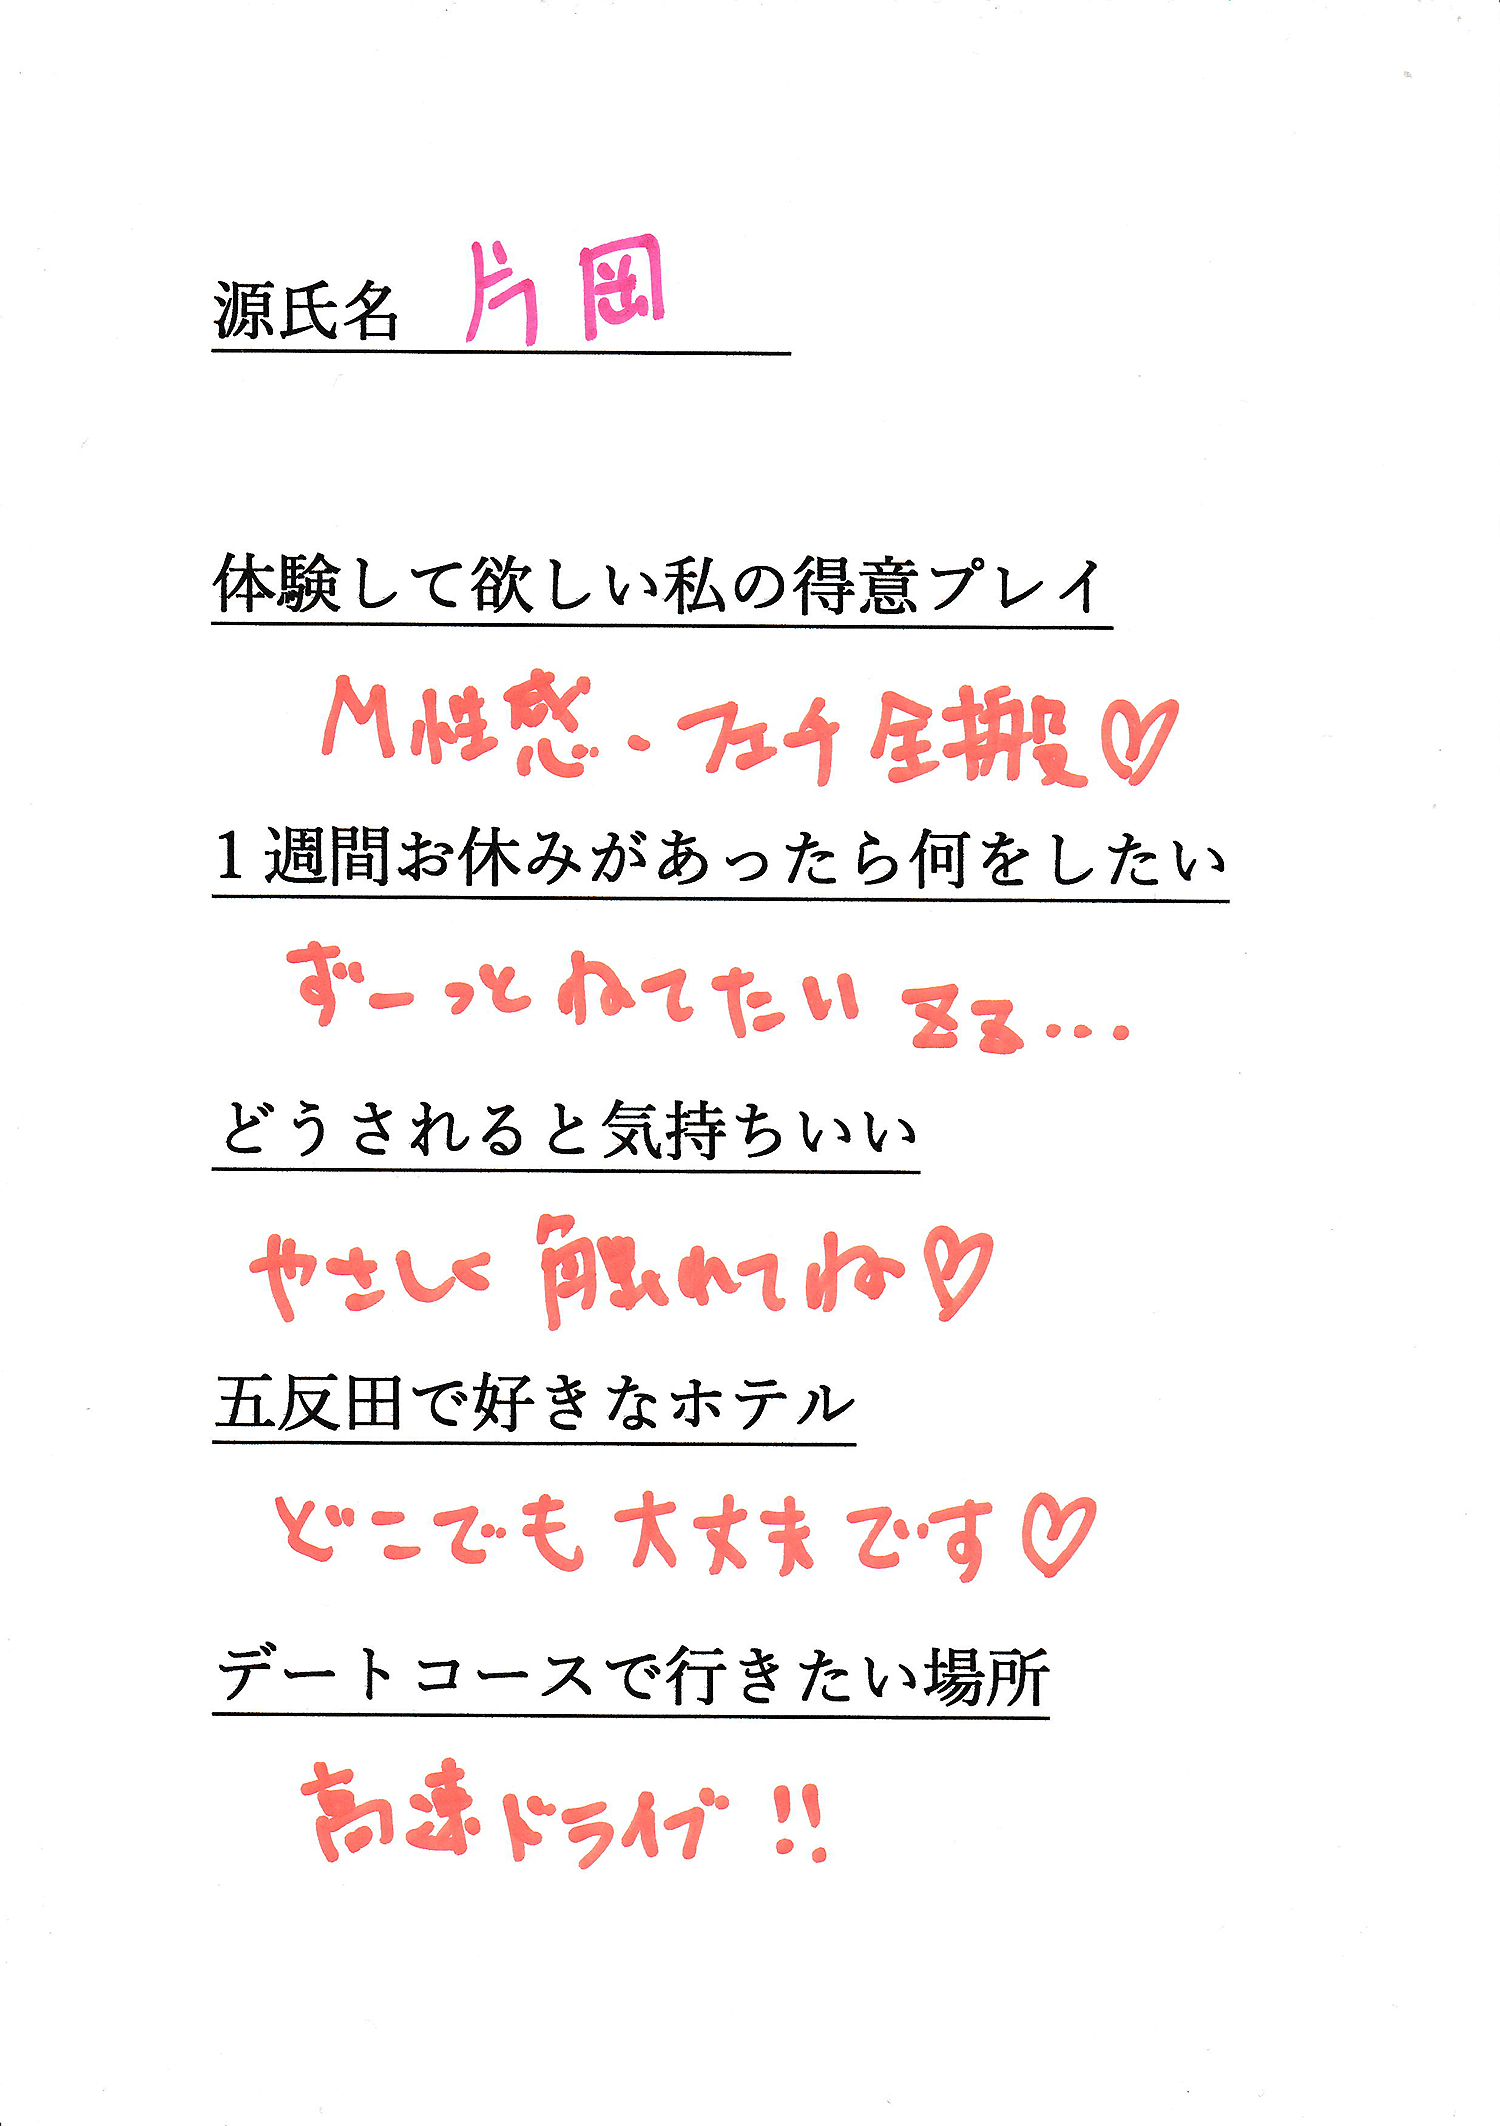 源氏名 片岡
体験して欲しい私の得意プレイ
M性感・フェチ全搬♡
1週間お休みがあったら何をしたい
ずーっとねてたい zz...
どうされると気持ちいい
やさしく触れてね♡
五反田で好きなホテル
どこでも大丈夫です♡
デートコースで行きたい場所
高速ドライブ!!